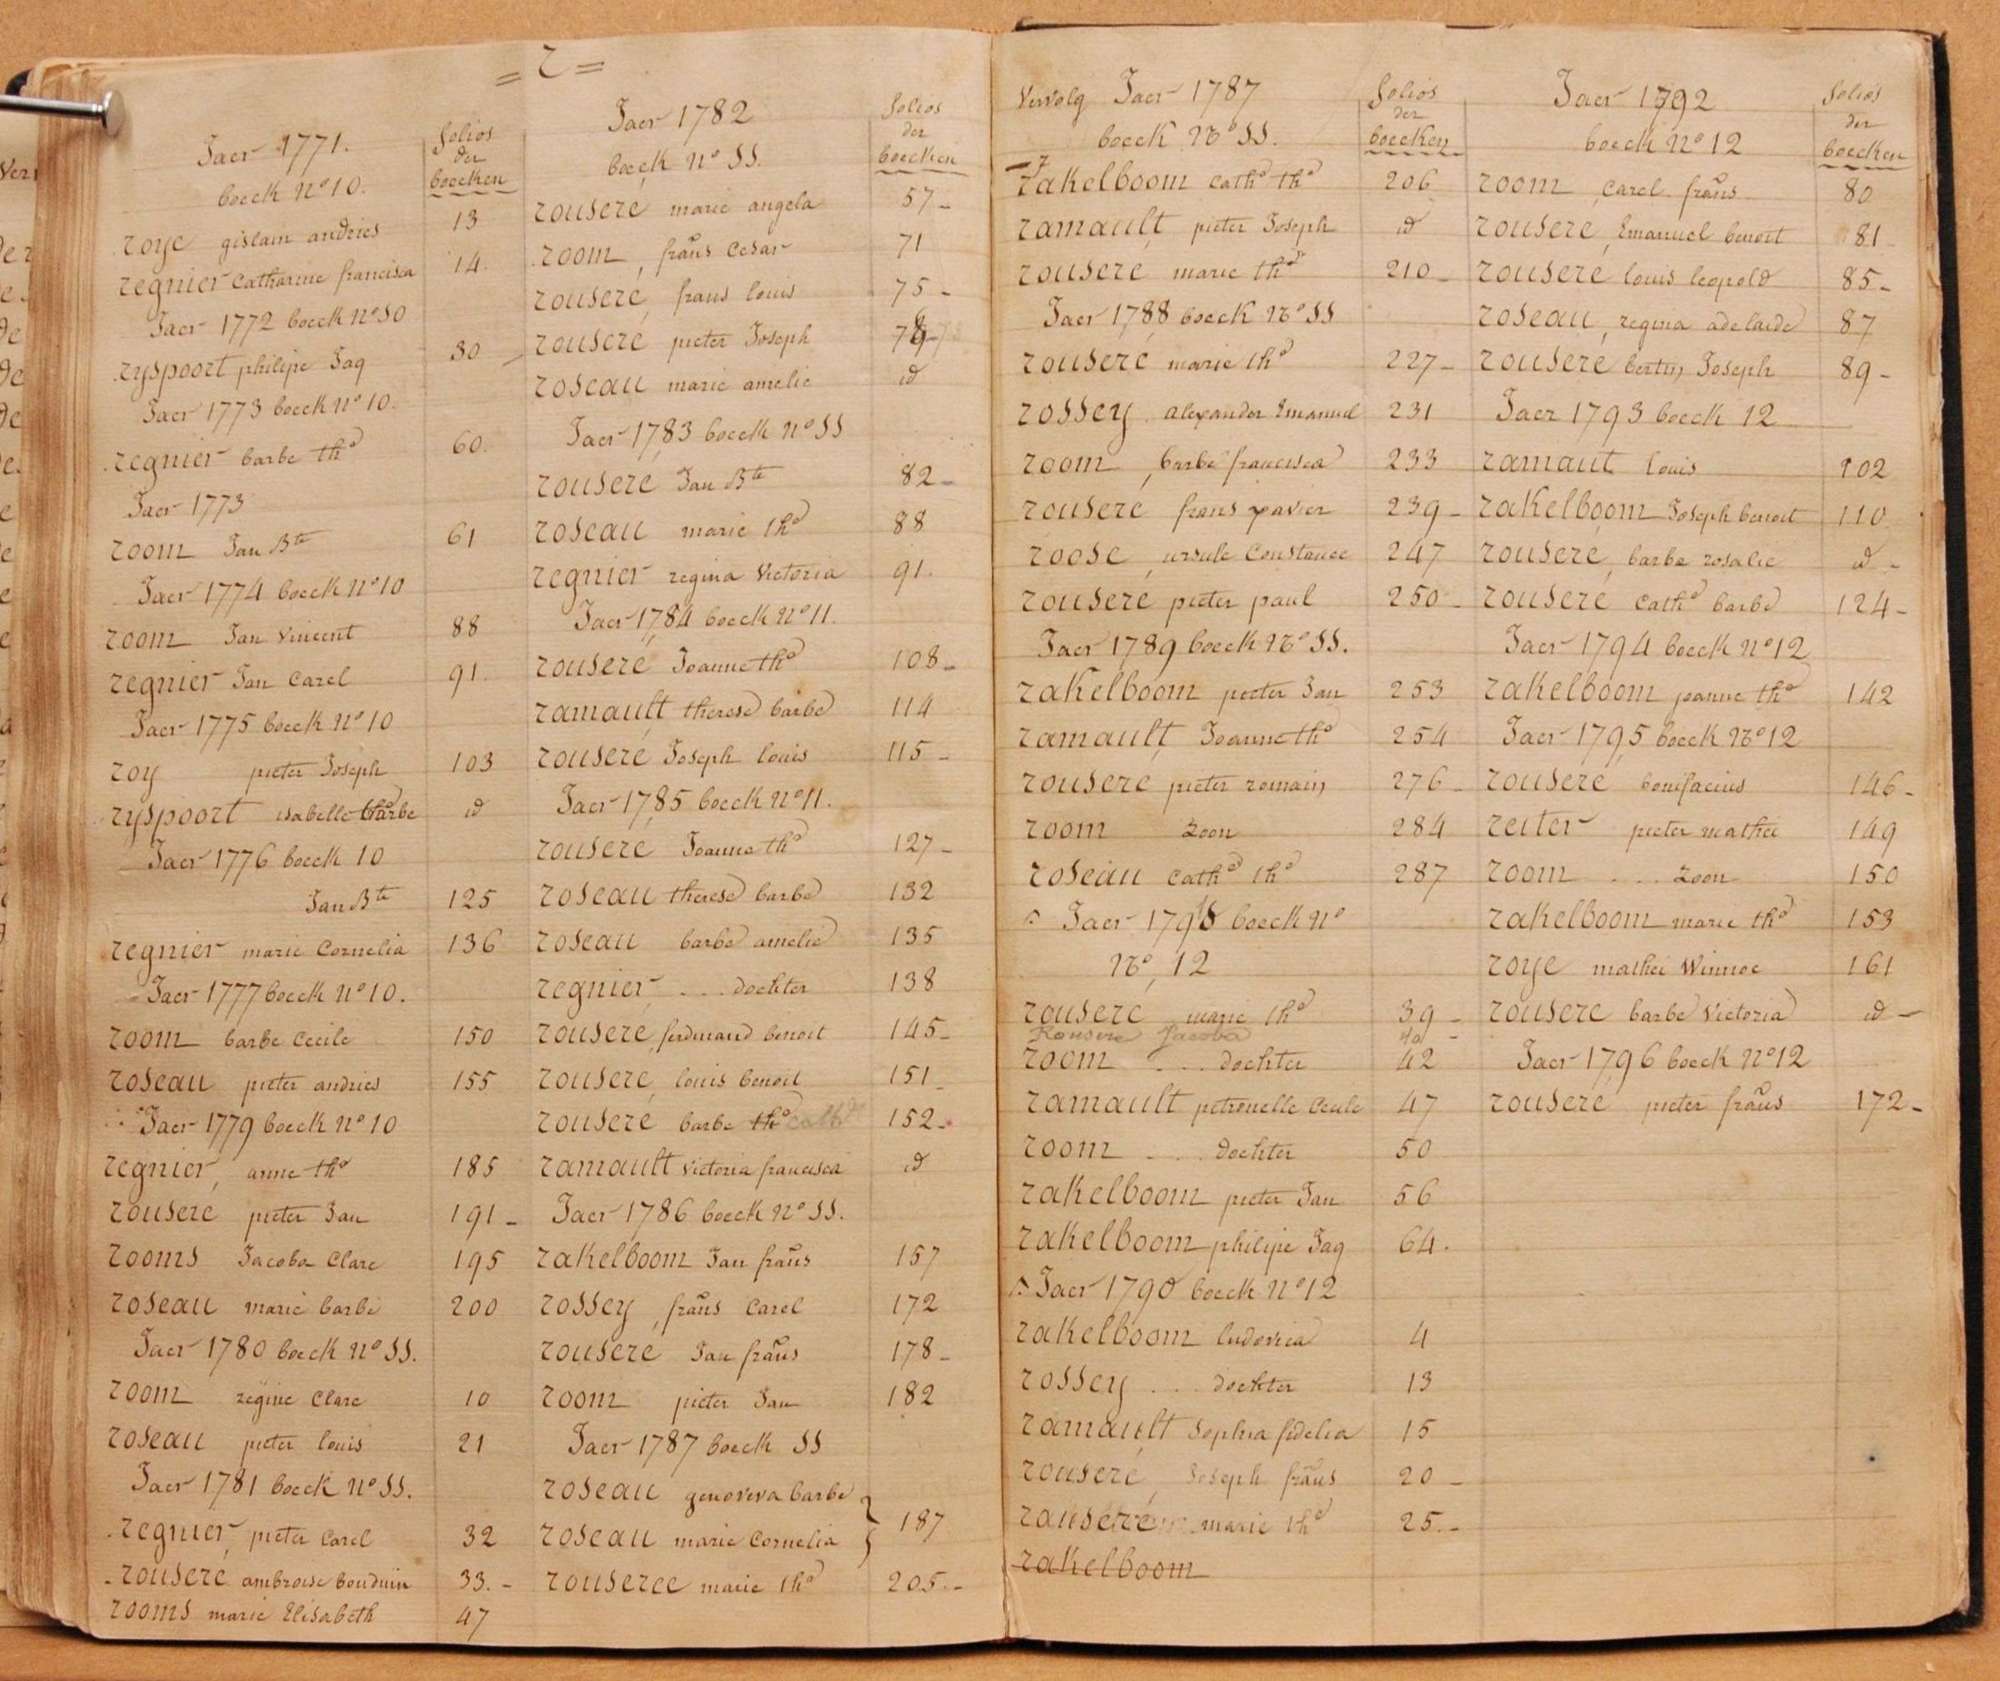 = r =
Jaer 1771.
boeck Nº 10.
folios der boecken
roye gislain andries 13
regnier Catharine francisca 14.
Jaer 1772 boeck Nº 10
ryspoort philipe Jaq 30
Jaer 1773 boeck Nº 10.
regnier barbe thᵉ 60.
Jaer 1773
room Jan Bte 61
Jaer 1774 boeck Nº 10
room Jan Vincent 88
regnier Jan Carel 91.
Jaer 1775 boeck Nº 10
roy pieter Joseph 103
ryspoort isabelle barbe id
Jaer 1776 boeck 10
Jan Bte 125
regnier marie Cornelia 136
Jaer 1777 boeck Nº 10.
room barbe Cecile 150
roseau pieter andries 155
Jaer 1779 boeck Nº 10
regnier, anne thᵉ 185
rouseré pieter Jan 191 -
rooms Jacoba Clare 195
roseau marie barbe 200
Jaer 1780 boeck Nº SS.
room regine Clare 10
roseau pieter louis 21
Jaer 1781 boeck Nº SS.
regnier, pieter Carel 32
rouseré ambroise Bouduin 33. -
rooms marie Elisabeth 47
Jaer 1782
boeck Nº SS.
folios der boecken
rouseré marie angela 57 -
room, frans Cesar 71
rouseré, frans louis 75 -
rouseré pieter Joseph 78 -
roseau marie amelie id
Jaer 1783 boeck Nº SS
rouseré Jan Bte 82 -
roseau marie thᵉ 88
regnier regina Victoria 91.
Jaer 1784 boeck Nº 11.
rouseré Joanne thᵉ 108 -
ramault therese barbe 114
rouseré Joseph louis 115 -
Jaer 1785 boeck Nº 11.
rouseré Joanna thᵉ 127 -
roseau therese barbe 132
roseau barbe amelie 135
regnier, ... dochter 138
rouseré, ferdinand benoit 145 -
rouseré, louis benoit 151 -
rouseré barbe thᵉ cathᵉ 152 -
ramault Victoria francisca id
Jaer 1786 boeck Nº SS.
rakelboom Jan frans 157
rossey, frans Carel 172
rouseré Jan frans 178 -
room pieter Jan 182
Jaer 1787 boeck SS
roseau genoveva barbe
roseau marie Cornelia } 187
rouseree marie thᵉ 205. -
Vervolg Jaer 1787
boeck Nº SS.
folios der boecken
rakelboom cathᵉ thᵉ 206
ramault pieter Joseph id
rouseré marie thᵉ 210 -
Jaer 1788 boeck Nº SS
rouseré, marie thᵉ 227 -
rossey alexander Emanuel 231
room, barbe francisca 233
rouseré frans xavier 239 -
roose, ursule Constance 247
rouseré pieter paul 250 -
Jaer 1789 boeck Nº SS.
rakelboom pieter Jan 253
ramault Joanne thᵉ 254
rouseré pieter romain 276 -
room zoon 284
roseau cathᵉ thᵉ 287
Jaer 1798 boeck Nº
Nº, 12
rouseré marie thᵉ 39 -
Rousere Jacoba
room ... dochter 42
ramault petronelle Cecile 47
room ... dochter 50
rakelboom pieter Jan 56
rakelboom philipe Jaq 64.
Jaer 1790 boeck Nº 12
rakelboom ludovica 4
rossey ... dochter 13
ramault Sophia fidelia 15
rouseré, Joseph frans 20 -
rouseré marie thᵉ 25. -
rakelboom
Jaer 1792
boeck Nº 12
folios der boecken
room, Carel frans 80
rouseré, Emanuel benoit 81 -
rouseré louis leopold 85 -
roseau, regina adelaide 87
rouseré bertin Joseph 89 -
Jaer 1793 boeck 12
ramaut louis 102
rakelboom Joseph benoit 110
rouseré, barbe rosalie id -
rouseré cathᵉ barbe 124 -
Jaer 1794 boeck Nº 12
rakelboom joanne thᵉ 142
Jaer 1795 boeck Nº 12
rouseré, bonifacius 146 -
reiter pieter mathei 149
room ... zoon 150
rakelboom marie thᵉ 153
roye mathei Winnoc 161
rouseré barbe Victoria id -
Jaer 1796 boeck Nº 12
rouseré pieter frans 172 -